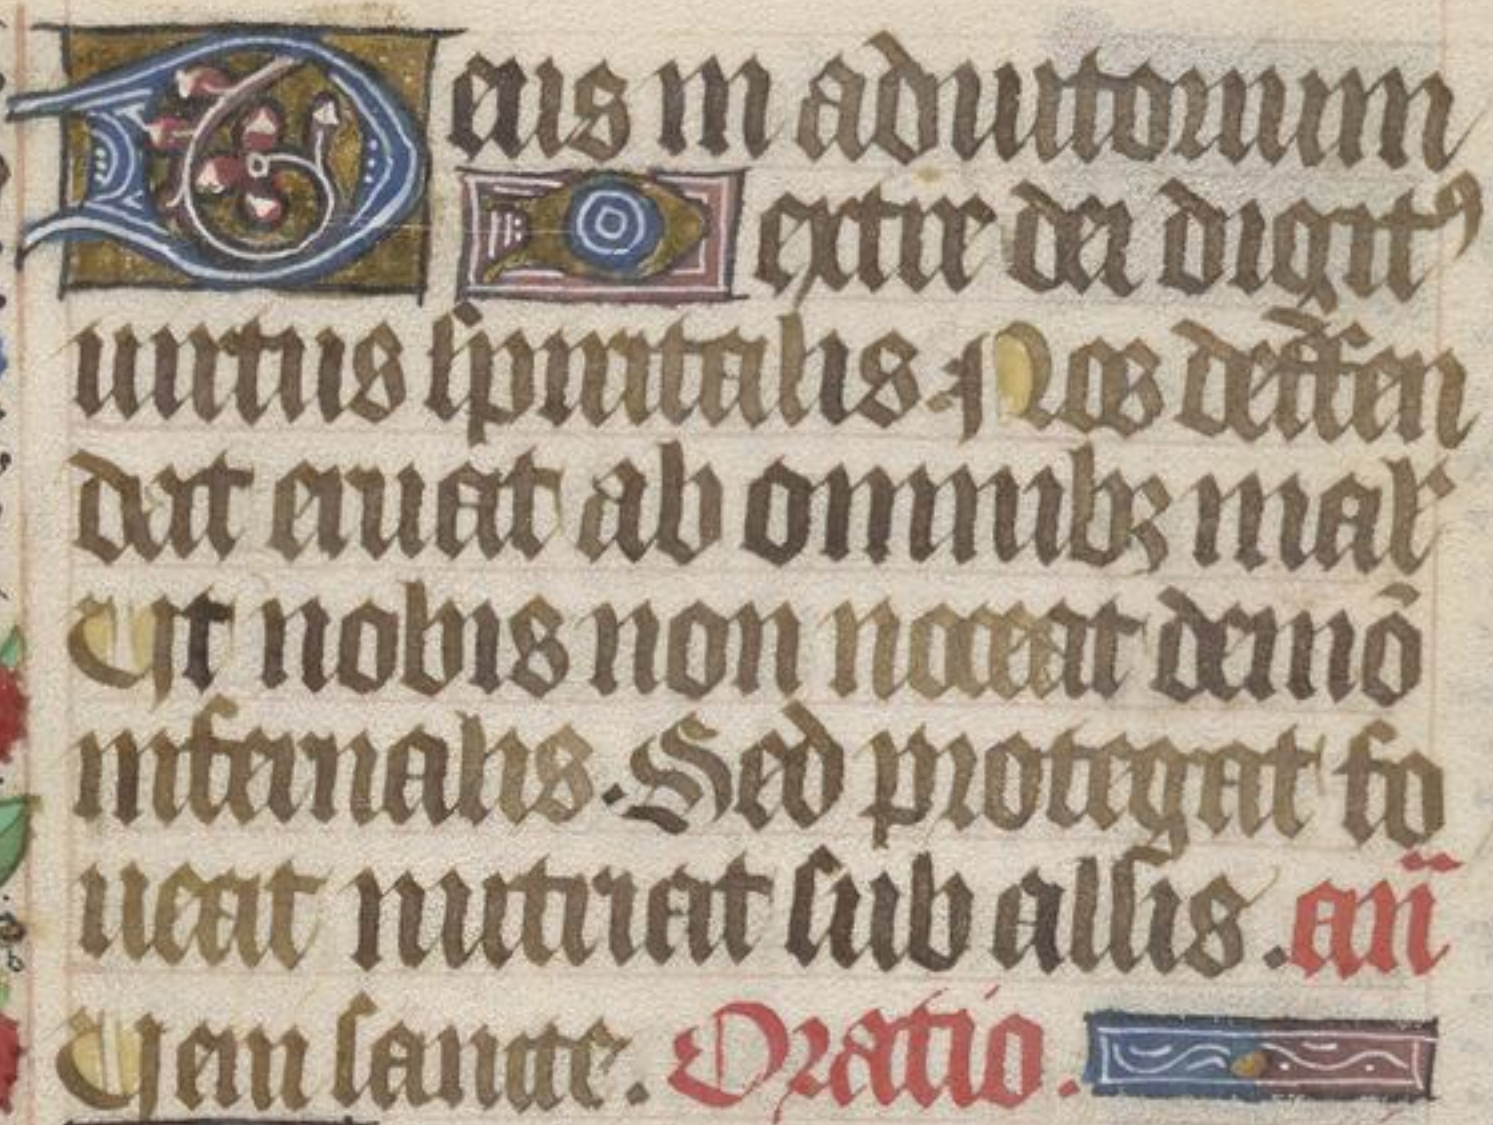 Deus in adiutorium
extire dei digitꝰ
uirtus spiritalis. Nos deffen
dat eruat ab omnibꝫ mal
Ut nobis non noceat demõ
infernalis. Sed protegat fo
ueat nutriat sub allis. añ
Uem sancte. Oratio.